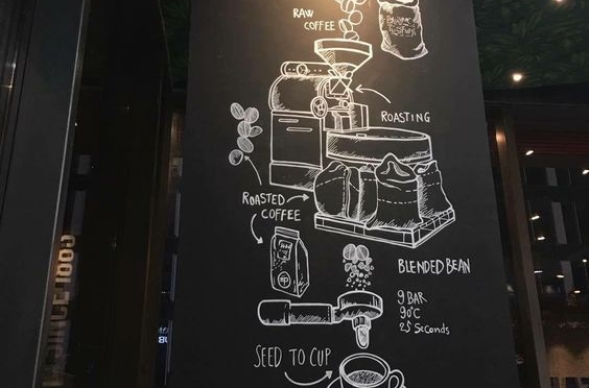 RAW
COFFEE
ROASTING
ROASTED
COFFEE
BLENDED BEAN
9 BAR
90°C
25 Seconds
SEED TO CUP